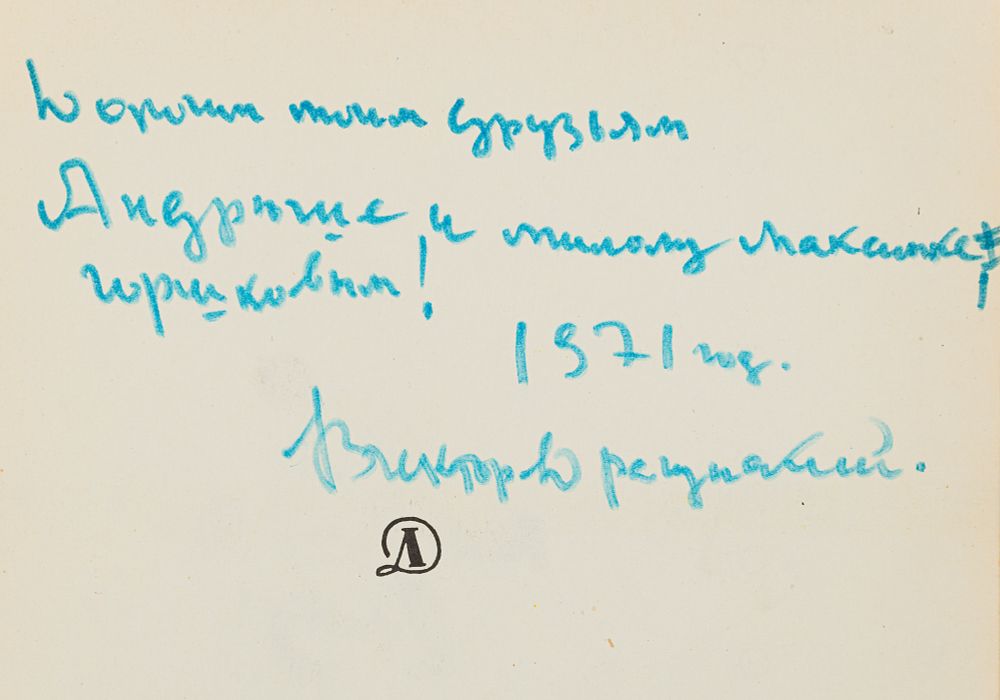 Дорогим моим друзьям
Андрюше и милому Максимке!
Горшковым!
1971 год.
Виктор Драгунский.